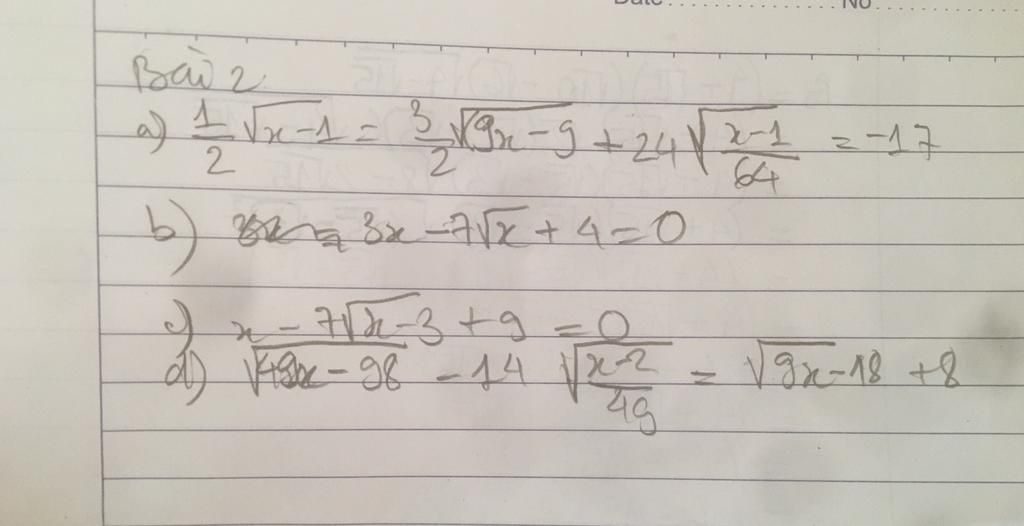 Date .................. No ..................
Bài 2
a) 1/2 √(x-1) = 3/2 √(9x-9) + 24 √((x-1)/64) = -17
b) 3x - 7√x + 4 = 0
c) x - 7√(x-3) + 9 = 0
d) √(49x-98) - 14 √((x-2)/49) = √(9x-18) + 8